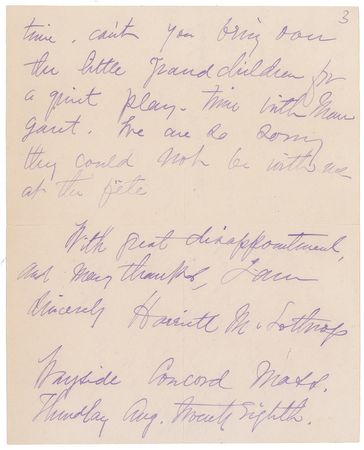 3
time. can't you bring over
the little grandchildren for
a quiet play-time with Mar
garet. We are so sorry
they could not be with us
at the fête
With great disappointment,
and many thanks, I am
Sincerely Harriett M. Lothrop
Wayside Concord Mass.
Thursday Aug. Twenty Eighth.